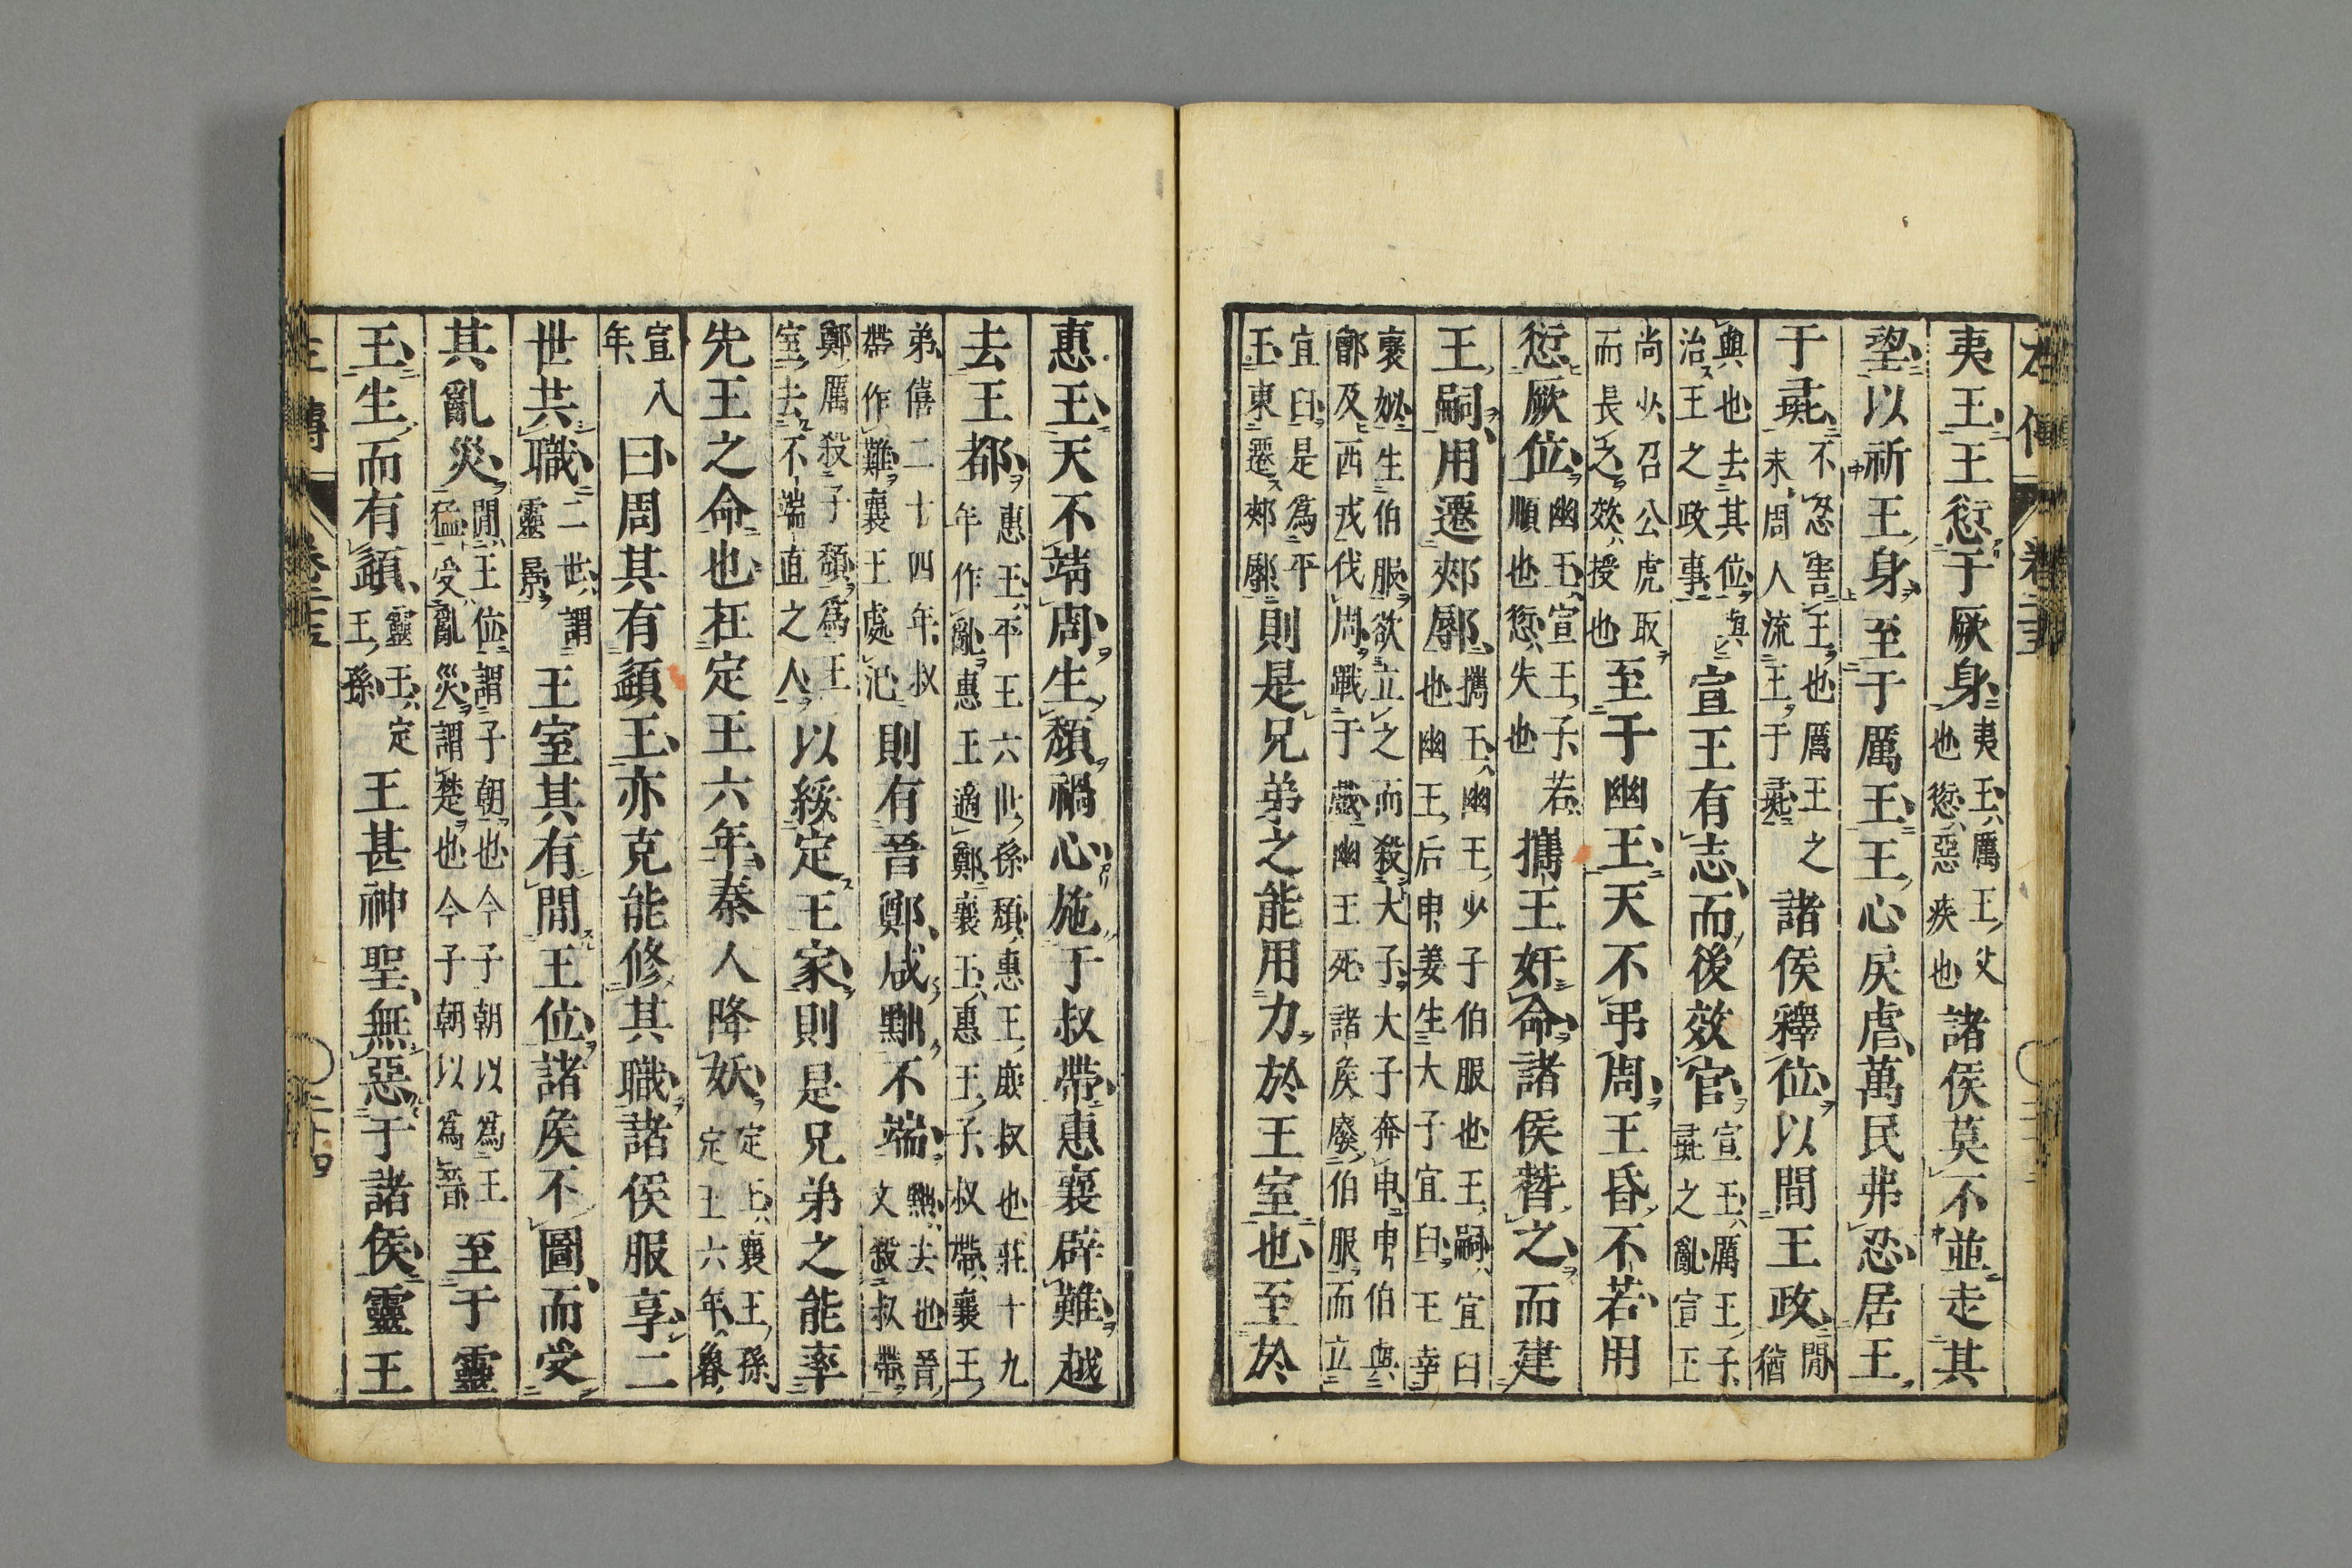 夷王王愆于厥身夷王厲王父也愆惡疾也諸侯莫不並走其
望以祈王身至于厲王王心戾虐萬民弗忍居王
于彘不忍害王也厲王之末周人流王于彘諸侯釋位以間王政間猶
與也去其位與治王之政事宣王有志而後效官宣王厲王子彘之亂宣王
尚少召公虎取而長之效授也至于幽王天不弔周王昏不若用
愆厥位幽王宣王子若順也愆失也攜王奸命諸侯替之而建
王嗣用遷郟鄏攜王幽王少子伯服也王嗣宜臼也幽王后申姜生大子宜臼王幸
襃姒生伯服欲立之而殺大子大子奔申申伯與鄫及西戎伐周戰于戲幽王死諸侯廢伯服而立
宜臼是為平王東遷郟鄏則是兄弟之能用力於王室也至於
惠王天不靖周生頹禍心施于叔帶惠襄辟難越
去王都惠王平王六世孫頹惠王庶叔也莊十九年作亂惠王適鄭襄王惠王子叔帶襄王
弟僖二十四年叔帶作難襄王處氾則有晉鄭咸黜不端黜去也晉文殺叔帶
鄭厲殺子頹為王室去不端直之人以綏定王家則是兄弟之能率
先王之命也在定王六年秦人降妖定王襄王孫定王六年魯
宣八年曰周其有頿王亦克能修其職諸侯服享二
世共職二世謂靈景王室其有間王位諸侯不圖而受
其亂災間王位謂子朝也今子朝以為王猛受亂災謂楚也今子朝以為晉至于靈
王生而有頿靈王定王孫王甚神聖無惡于諸侯靈王